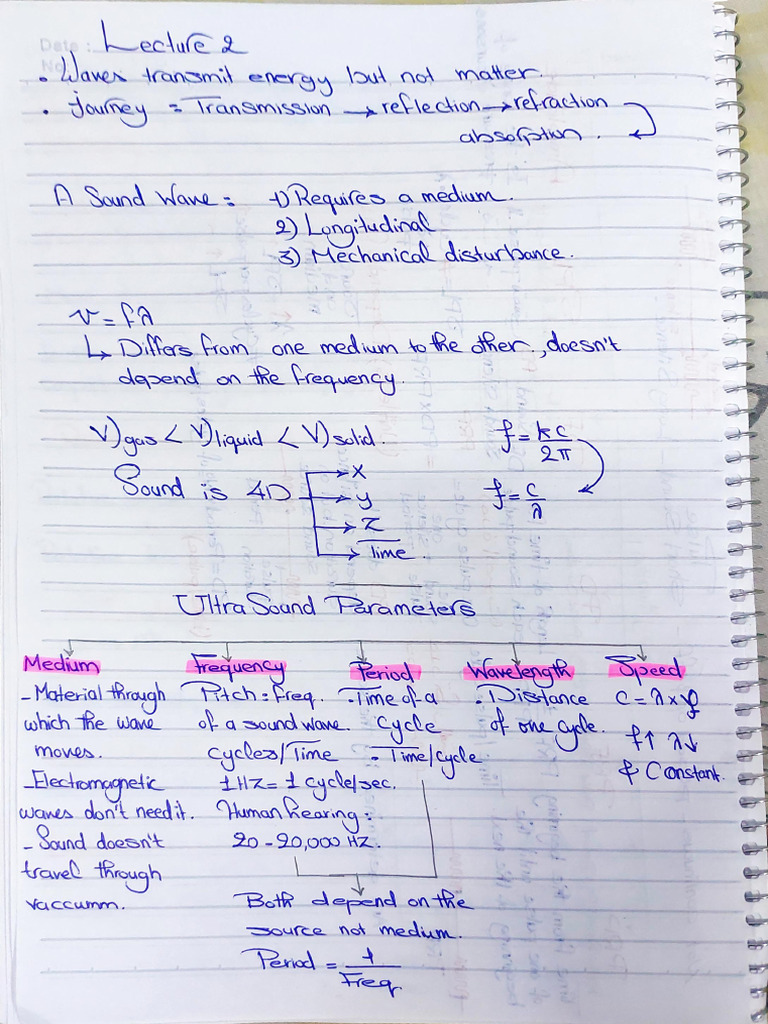 Date:
No
Lecture 2
• Waves transmit energy but not matter.
• journey = Transmission → reflection → refraction
absorption.
A Sound Wave: 1) Requires a medium.
2) Longitudinal
3) Mechanical disturbance.
v = fλ
↳ Differs from one medium to the other, doesn't
depend on the frequency.
V)gas < V)liquid < V)solid.
f = kc/2π
Sound is 4D → x
→ y
→ z
→ Time.
f = c/λ
UltraSound Parameters
Medium
- Material through
which the wave
moves.
- Electromagnetic
waves don't need it.
- Sound doesn't
travel through
vaccumm.
Frequency
Pitch: freq.
of a sound wave.
Cycles/Time
1HZ = 1 cycle/sec.
Human hearing:
20 - 20,000 HZ.
Period
• Time of a
Cycle
= Time/cycle
Both depend on the
source not medium.
Period = 1/Freq
Wavelength
• Disstance
of one cycle.
Speed
C = λ x f
f↑ λ↓
& Constant.